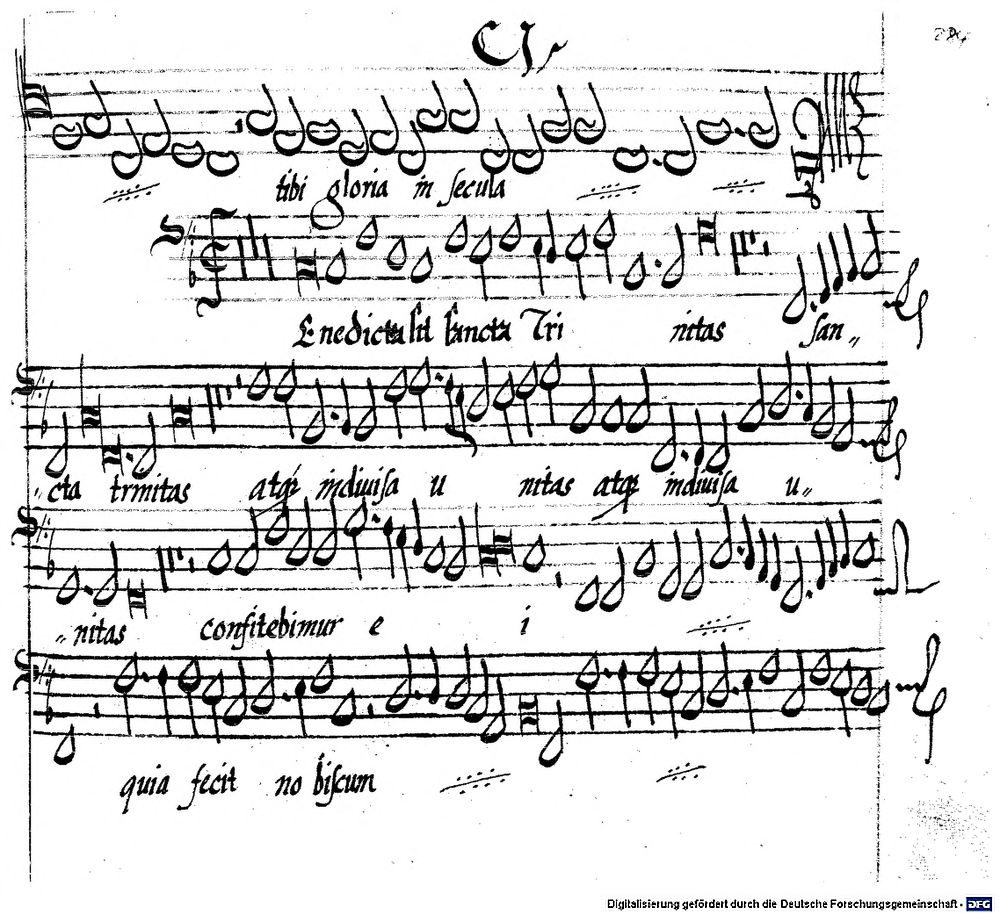 tibi gloria in secula
Enedicta sit sancta Tri nitas san„
„cta trinitas atqȝ indiuisa u nitas atqȝ indiuisa u„
„nitas confitebimur e i
quia fecit no biscum
Digitalisierung gefördert durch die Deutsche Forschungsgemeinschaft - DFG